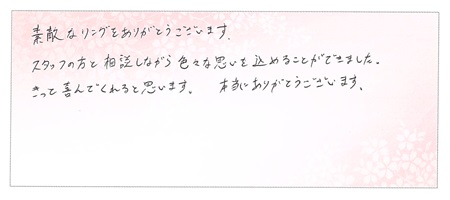 素敵なリングをありがとうございます。
スタッフの方と相談しながら色々な思いを込めることができました。
きっと喜んでくれると思います。　本当にありがとうございます。